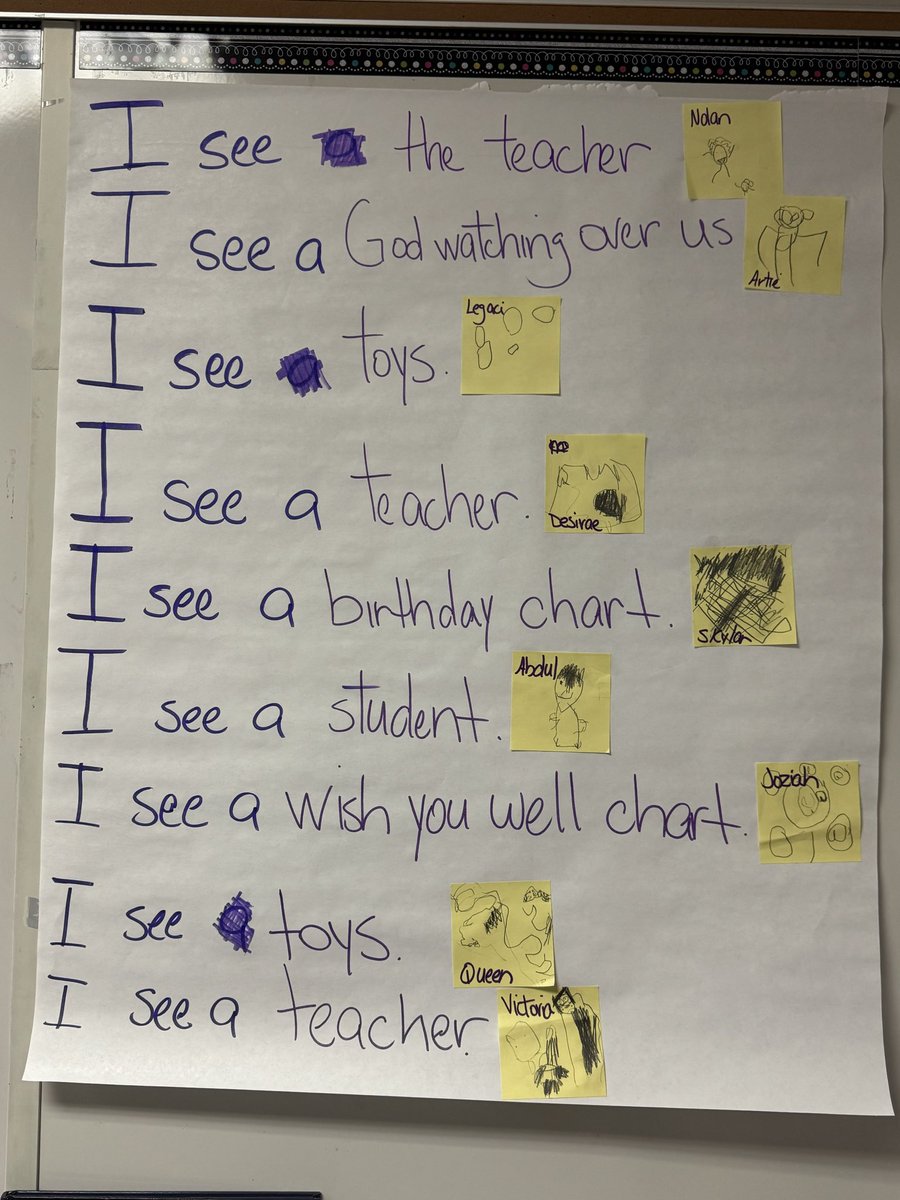 I see the teacher Nolan
I see a God watching over us Artie
I see toys. Legaci
I see a teacher. Desirae
I see a birthday chart. Skylar
I see a student. Abdul
I see a wish you well chart. Joziah
I see toys. Queen
I see a teacher. Victoria